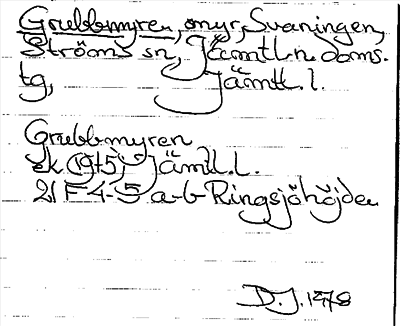 Grubbmyren, myr, Svaningen,
Ströms sn, Jämtl. n. doms.
tg, Jämtl. l.
Grubbmyren
ek (1975) Jämtl. L.
21 F 4-5 a-b Ringsjöhöjden
D. J. 1978